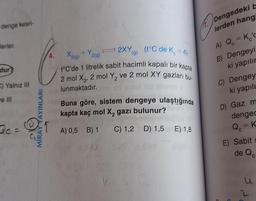 denge kesri-
lerler.
dur?
C) Yalnız III
ve III
MİRAY YAYINLARI
4. X2(g) + Y2(g) ⇌ 2XY(g) (t°C de Kc = 4)
t°C'de 1 litrelik sabit hacimli kapalı bir kapta
2 mol X2, 2 mol Y2 ve 2 mol XY gazları bu-
lunmaktadır.
Buna göre, sistem dengeye ulaştığında
kapta kaç mol X2 gazı bulunur?
A) 0,5 B) 1 C) 1,2 D) 1,5 E) 1,8
7. Dengedeki b
lerden hang
A) Qc = Kc'd
B) Dengeyi
ki yapılır
C) Dengey
ki yapıla
D) Gaz m
dengec
Qc = K
E) Sabit s
de Qc